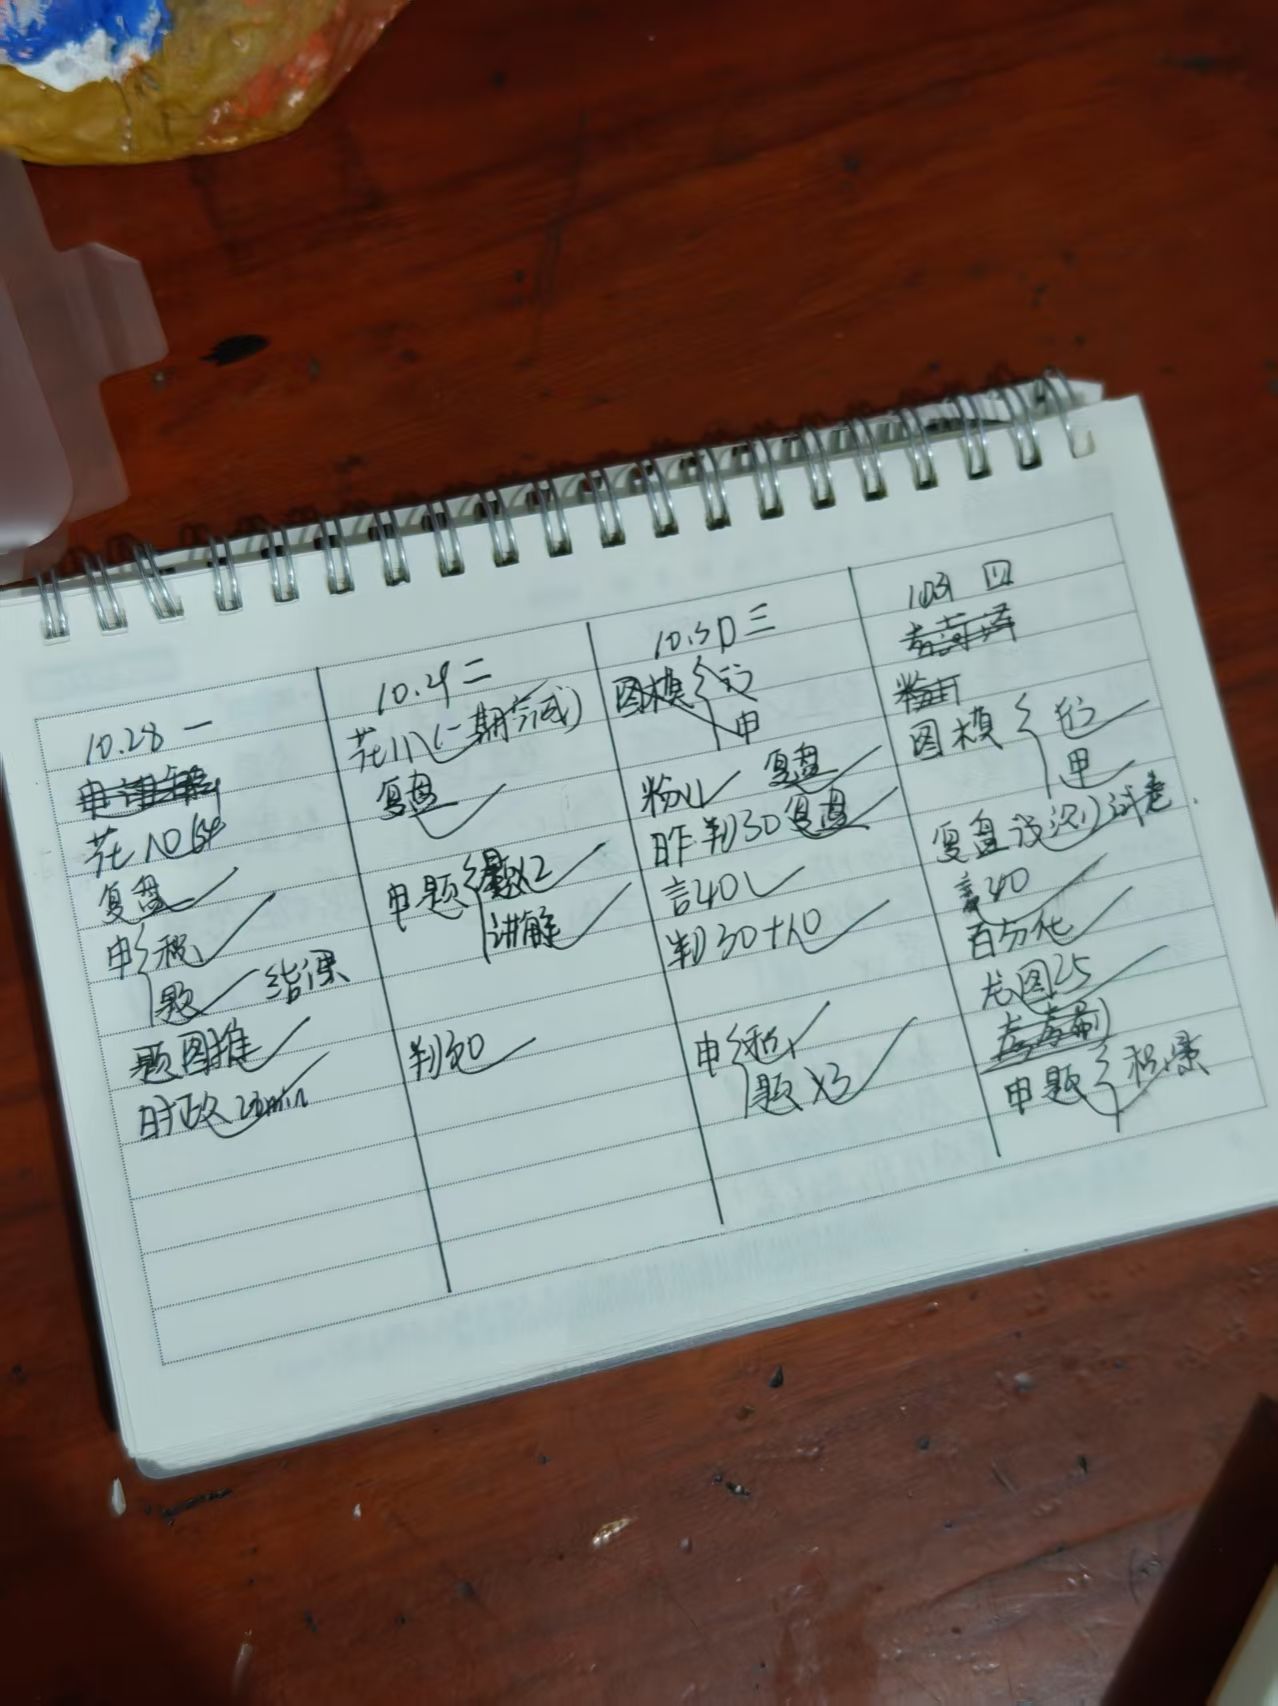 10.28 一
花10
复盘
申 积
题 结课
题图推
时政20min
10.29 二
花11(一期完成)
复盘
申题 题×2
讲解
判30
10.30 三
图模 行
申
粉11 复盘
昨判30复盘
言40
判30+10
申 积
题×3
四
图模 行
申
复盘 试卷
言40
百分化
龙图25
申题 积累